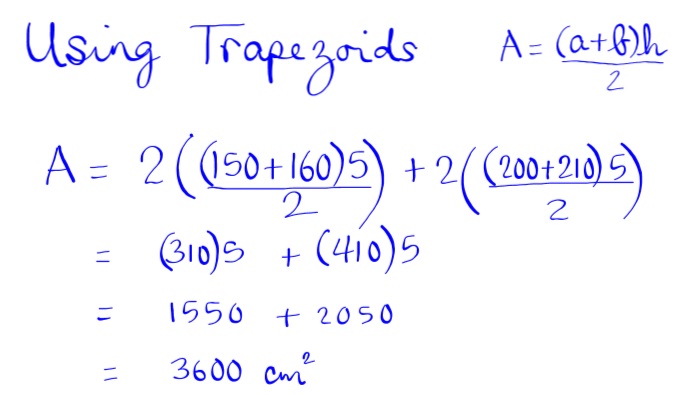 Using Trapezoids A = (a+b)h/2
A = 2((150+160)5/2) + 2((200+210)5/2)
= (310)5 + (410)5
= 1550 + 2050
= 3600 cm²